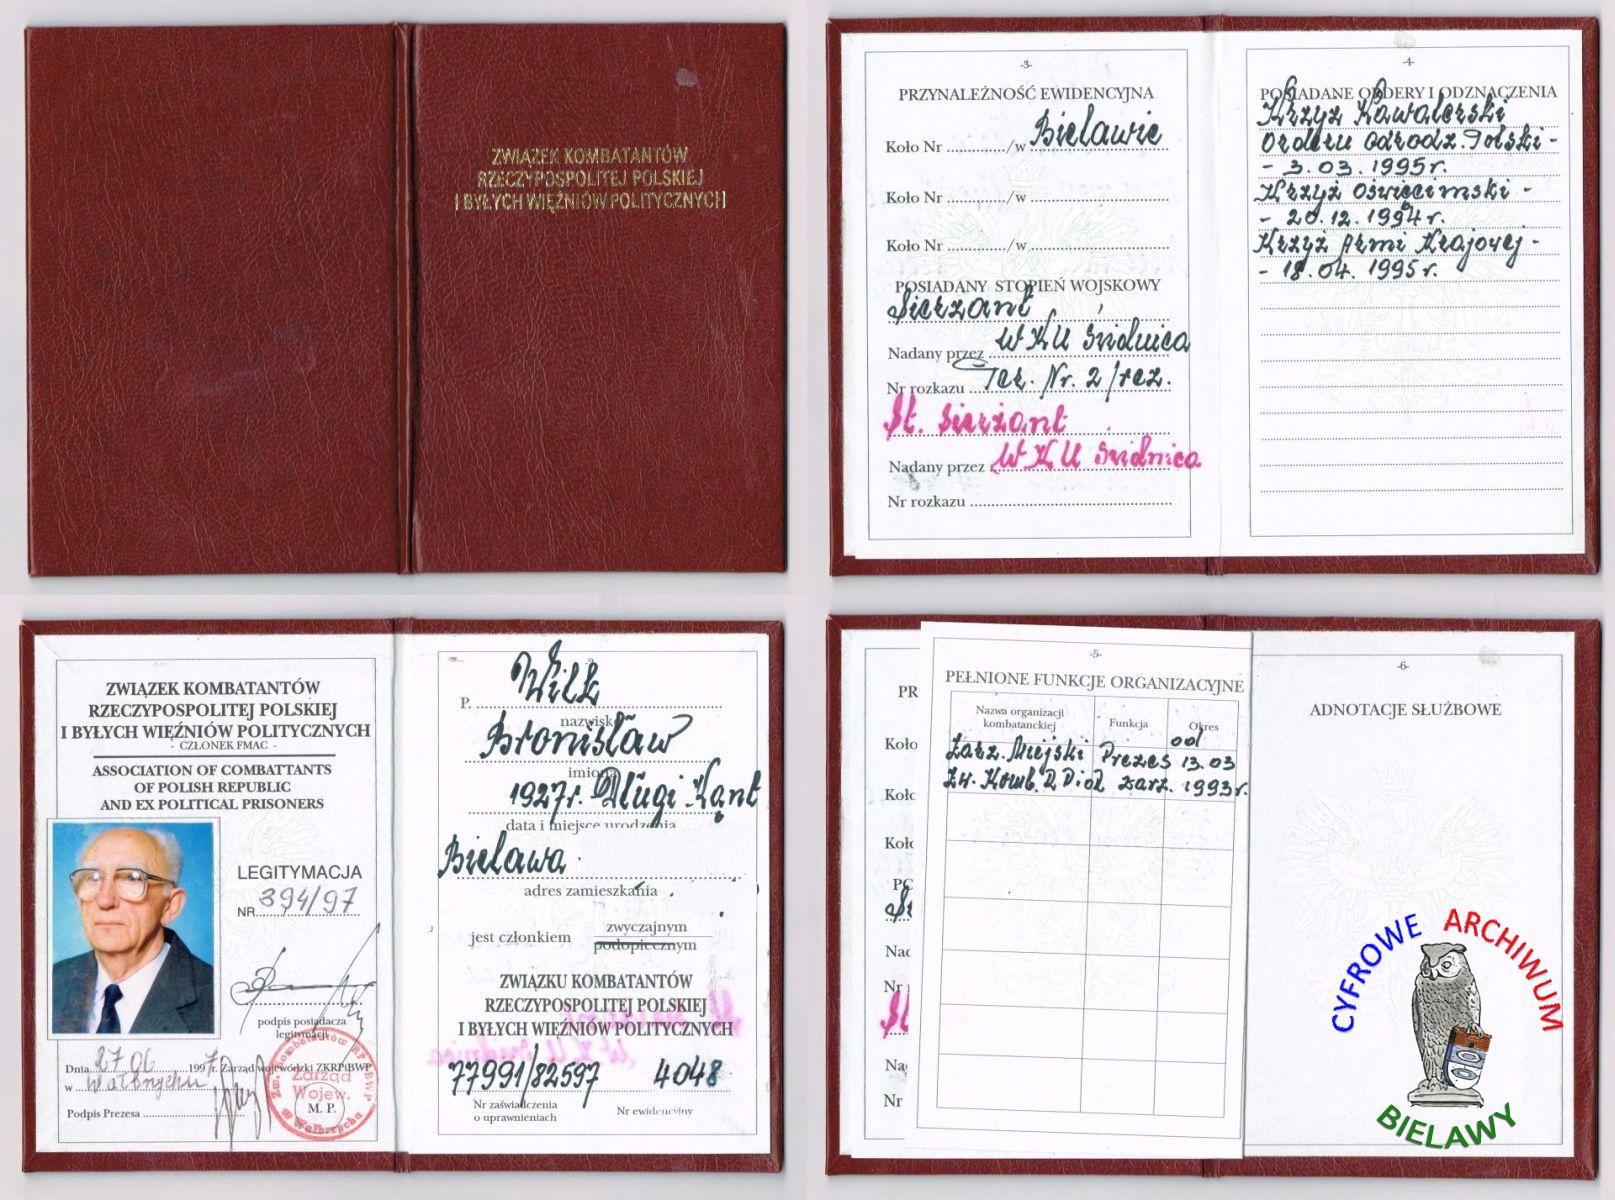 ZWIĄZEK KOMBATANTÓW
RZECZYPOSPOLITEJ POLSKIEJ
I BYŁYCH WIĘŹNIÓW POLITYCZNYCH
-3-
PRZYNALEŻNOŚĆ EWIDENCYJNA
Koło Nr ............/w Bielawie
Koło Nr ............/w
Koło Nr ............/w
POSIADANY STOPIEŃ WOJSKOWY
Sierżant
Nadany przez WKU Świdnica
Nr rozkazu Nr. 2/rez.
St. Sierżant
Nadany przez WKU Świdnica
Nr rozkazu
-4-
POSIADANE ORDERY I ODZNACZENIA
Krzyż Kawalerski
Orderu Odrodz. Polski -
- 3.03.1995r.
Krzyż Oświęcimski -
- 20.12.1994r.
Krzyż Armi Krajowej -
- 18.04.1995r.
ZWIĄZEK KOMBATANTÓW
RZECZYPOSPOLITEJ POLSKIEJ
I BYŁYCH WIĘŹNIÓW POLITYCZNYCH
- CZŁONEK FMAC -
ASSOCIATION OF COMBATTANTS
OF POLISH REPUBLIC
AND EX POLITICAL PRISONERS
LEGITYMACJA
NR 394/97
podpis posiadacza
legitymacji
Dnia 27 06 1997r. Zarząd wojewódzki ZKRPiBWP
w Wałbrzychu
Podpis Prezesa
M. P.
Zw. Kombatantów RP i BWP
Zarząd
Wojew.
w Wałbrzychu
P. Wilk
nazwisko
Bronisław
imiona
1927r. Długi Kąnt
data i miejsce urodzenia
Bielawa
adres zamieszkania
jest członkiem zwyczajnym
podopiecznym
ZWIĄZKU KOMBATANTÓW
RZECZYPOSPOLITEJ POLSKIEJ
I BYŁYCH WIĘŹNIÓW POLITYCZNYCH
77991/82597 4048
Nr zaświadczenia
o uprawnieniach
Nr ewidencyjny
PR
Koło
Koło
Koło
PO
Nad
Nr
Na
Nr
-5-
PEŁNIONE FUNKCJE ORGANIZACYJNE
Nazwa organizacji
kombatanckiej
Funkcja
Okres
Zarz. Miejski Prezes od 13.03
Zw. Komb. zarz. 1993r.
-6-
ADNOTACJE SŁUŻBOWE
CYFROWE ARCHIWUM
BIELAWY